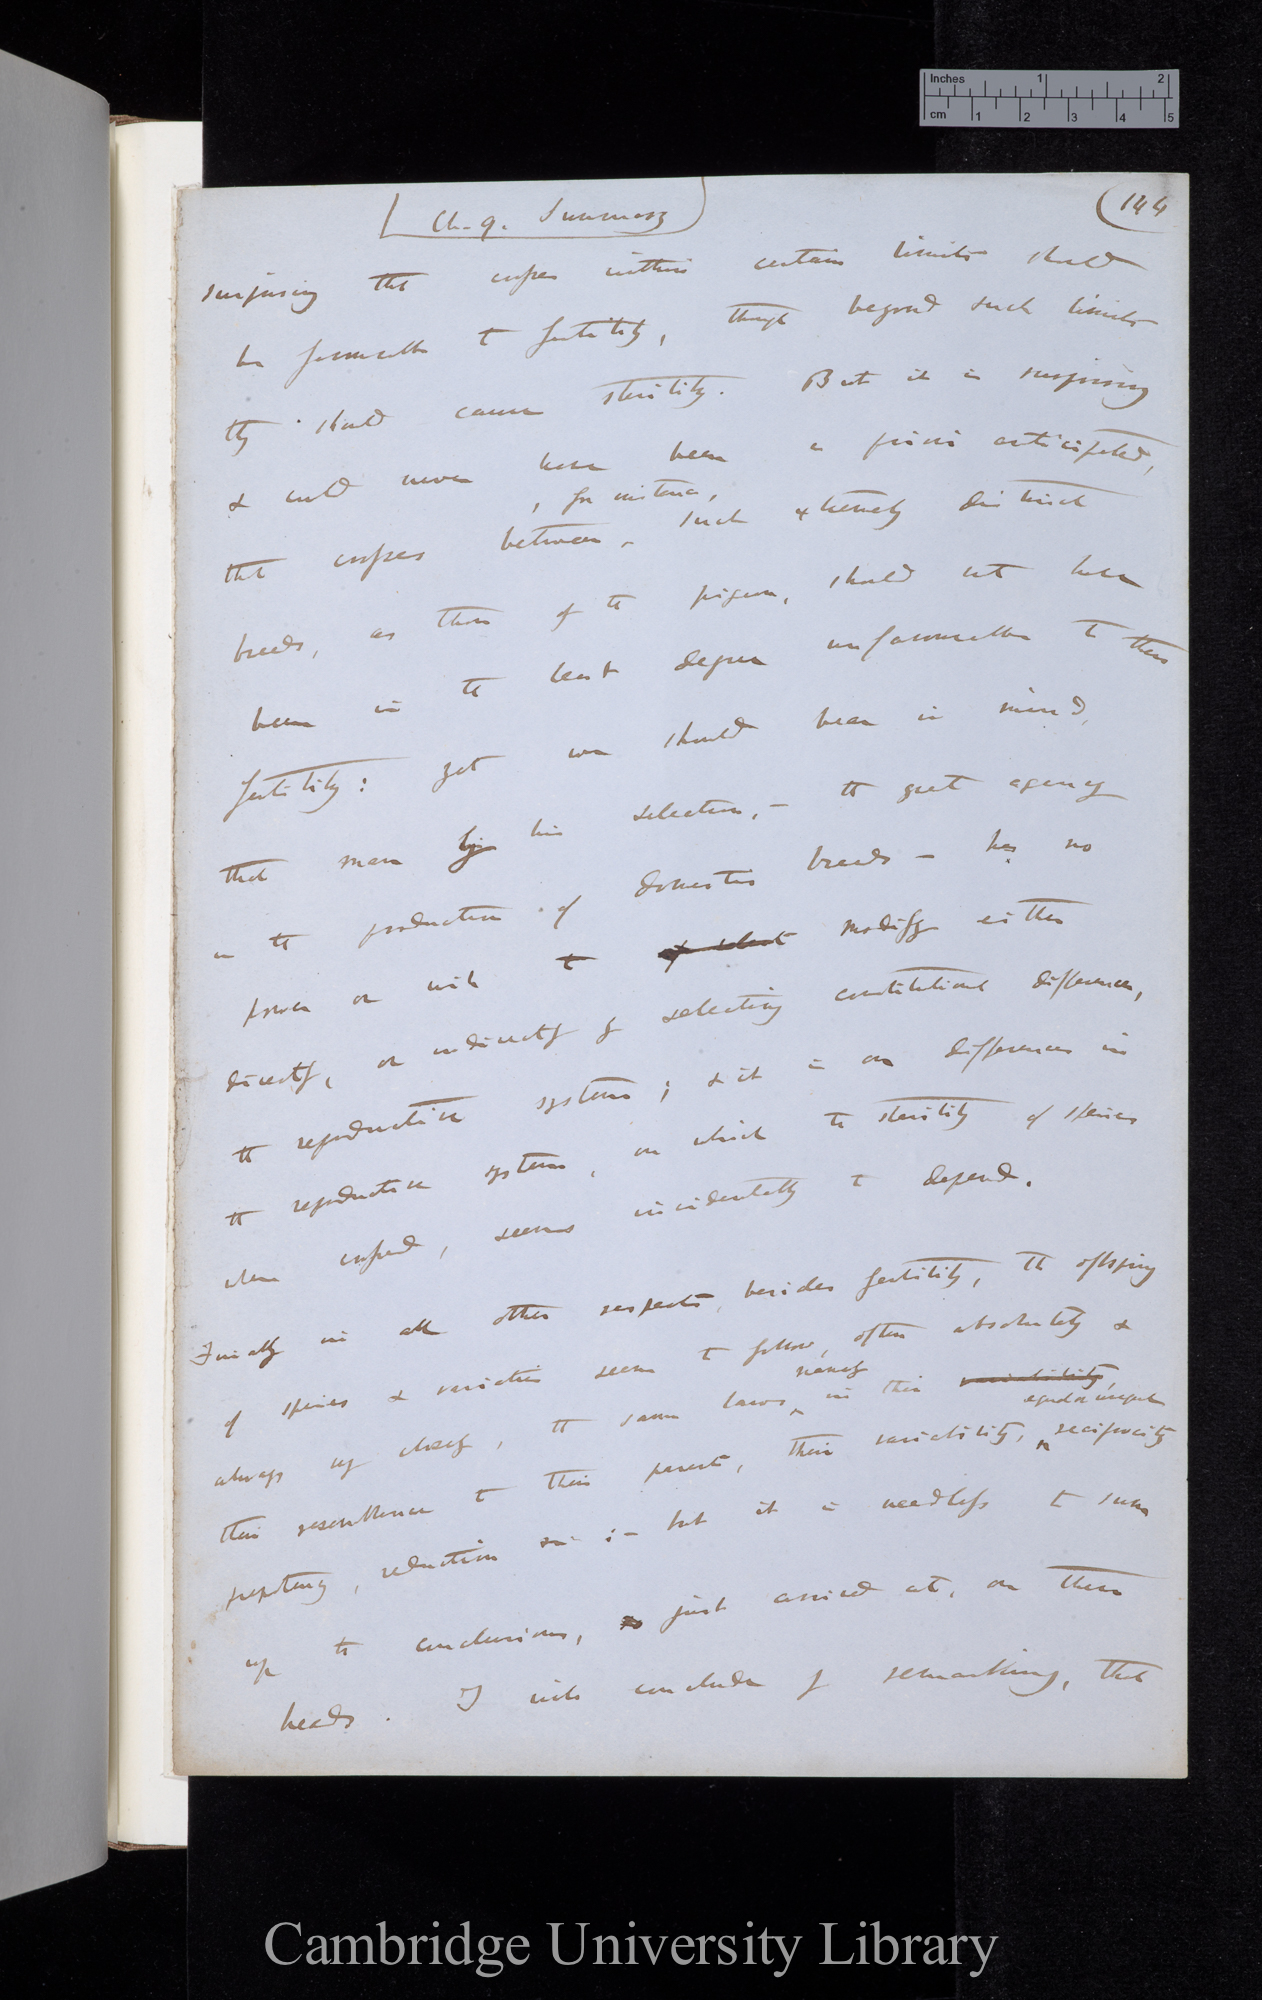 Inches 1 2
cm 1 2 3 4 5
Ch. 9. Summary
144
surprising that crosses within certain limits should
be favourable to fertility, though beyond such limits
they should cause sterility. But it is surprising
& could never have been a priori anticipated,
, for instance,
that crosses between such extremely distinct
breeds, as those of the pigeon, should not have
been in the least degree unfavourable to their
fertility: yet we should bear in mind,
that man by his selection, – the great agency
in the production of domestic breeds – has no
power or wish to modify either
directly, or indirectly by selecting constitutional differences,
the reproductive system; & it is on differences in
the reproductive system, on which the sterility of species
when crossed, seems incidentally to depend.
Finally in all other respects, besides fertility, the offspring
of species & varieties seem to follow, often absolutely &
always very closely, the same laws, namely in their variability,
equal or unequal
their resemblance to their parents, their variability, reciprocity
prepotency, reduction &c :– but it is needless to sum
up the conclusions, just arrived at, on these
heads. I will conclude by remarking, that
Cambridge University Library